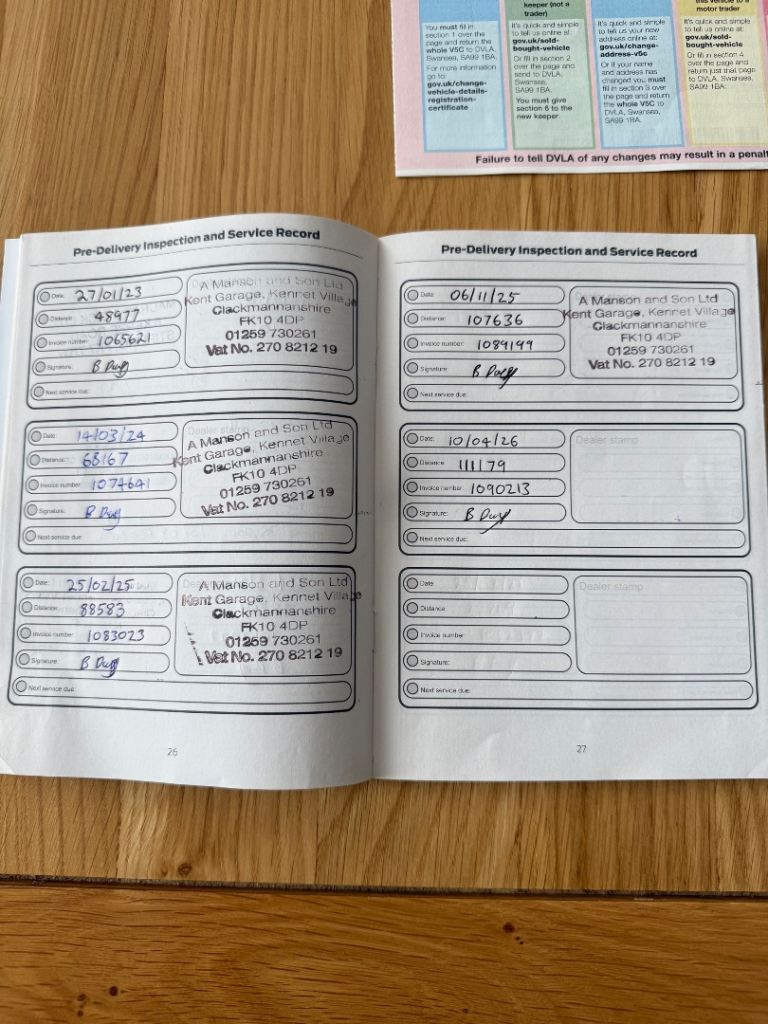 keeper (not a
trader)
this vehicle to a
motor trader
You must fill in
section 1 over the
page and return the
whole V5C to DVLA,
Swansea, SA99 1BA.
For more information
go to:
gov.uk/change-
vehicle-details-
registration-
certificate
It's quick and simple
to tell us online at:
gov.uk/sold-
bought-vehicle
Or fill in section 2
over the page and
send to DVLA,
Swansea,
SA99 1BA.
You must give
section 6 to the
new keeper.
It's quick and simple
to tell us your new
address online at:
gov.uk/change-
address-v5c
Or if your name
and address has
changed you must
fill in section 3 over
the page and return
the whole V5C to
DVLA, Swansea,
SA99 1BA.
It's quick and simple
to tell us online at:
gov.uk/sold-
bought-vehicle
Or fill in section 4
over the page and
return just that page
to DVLA, Swansea,
SA99 1BA.
Failure to tell DVLA of any changes may result in a penalt
Pre-Delivery Inspection and Service Record
Date: 27/01/23
Distance: 48977
Invoice number: 1065621
Signature:
Next service due:
A Manson and Son Ltd
Kent Garage, Kennet Village
Clackmannanshire
FK10 4DP
01259 730261
Vat No. 270 8212 19
Date: 14/03/24
Distance: 68167
Invoice number: 1074641
Signature:
Next service due:
Dealer stamp
A Manson and Son Ltd
Kent Garage, Kennet Village
Clackmannanshire
FK10 4DP
01259 730261
Vat No. 270 8212 19
Date: 25/02/25
Distance: 88583
Invoice number: 1083023
Signature:
Next service due:
A Manson and Son Ltd
Kent Garage, Kennet Village
Clackmannanshire
FK10 4DP
01259 730261
Vat No. 270 8212 19
26
Pre-Delivery Inspection and Service Record
Date: 06/11/25
Distance: 107636
Invoice number: 1089199
Signature:
Next service due:
A Manson and Son Ltd
Kent Garage, Kennet Village
Clackmannanshire
FK10 4DP
01259 730261
Vat No. 270 8212 19
Date: 10/04/26
Distance: 111179
Invoice number: 1090213
Signature:
Next service due:
Dealer stamp
Date:
Distance:
Invoice number:
Signature:
Next service due:
Dealer stamp
27